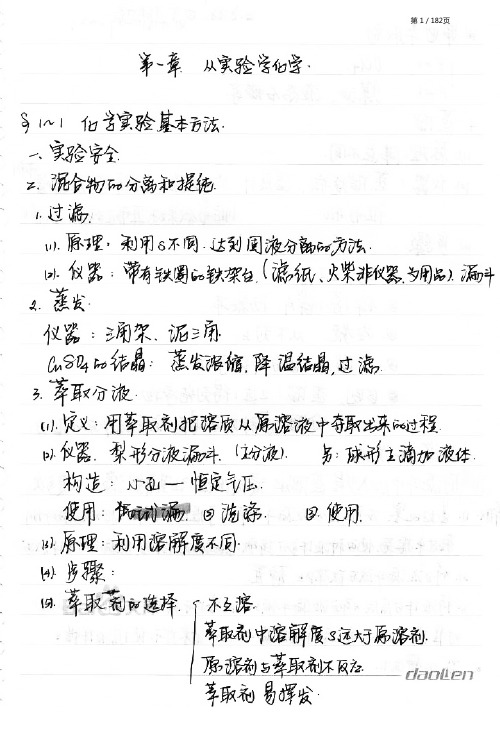 第 1 / 182页
第一章 从实验学化学.
§1~1 化学实验基本方法.
一、实验安全.
二、混合物的分离和提纯.
1. 过滤.
(1). 原理：利用S不同.达到固液分离的方法.
(2). 仪器：带有铁圈的铁架台.(滤纸、火柴非仪器,为用品).漏斗
2. 蒸发.
仪器：三角架、泥三角.
CuSO4的结晶：蒸发浓缩,降温结晶,过滤.
3. 萃取分液.
(1). 定义：用萃取剂把溶质从原溶液中夺取出来的过程.
(2). 仪器. 梨形分液漏斗.(主分液). 另：球形主滴加液体.
构造：小孔—恒定气压.
使用： 洗涤. 使用.
(3). 原理：利用溶解度不同.
(4). 步骤：
(5). 萃取剂的选择. 不互溶.
萃取剂中溶解度S远大于原溶剂.
原溶剂与萃取剂不反应.
萃取剂易挥发.
daolen